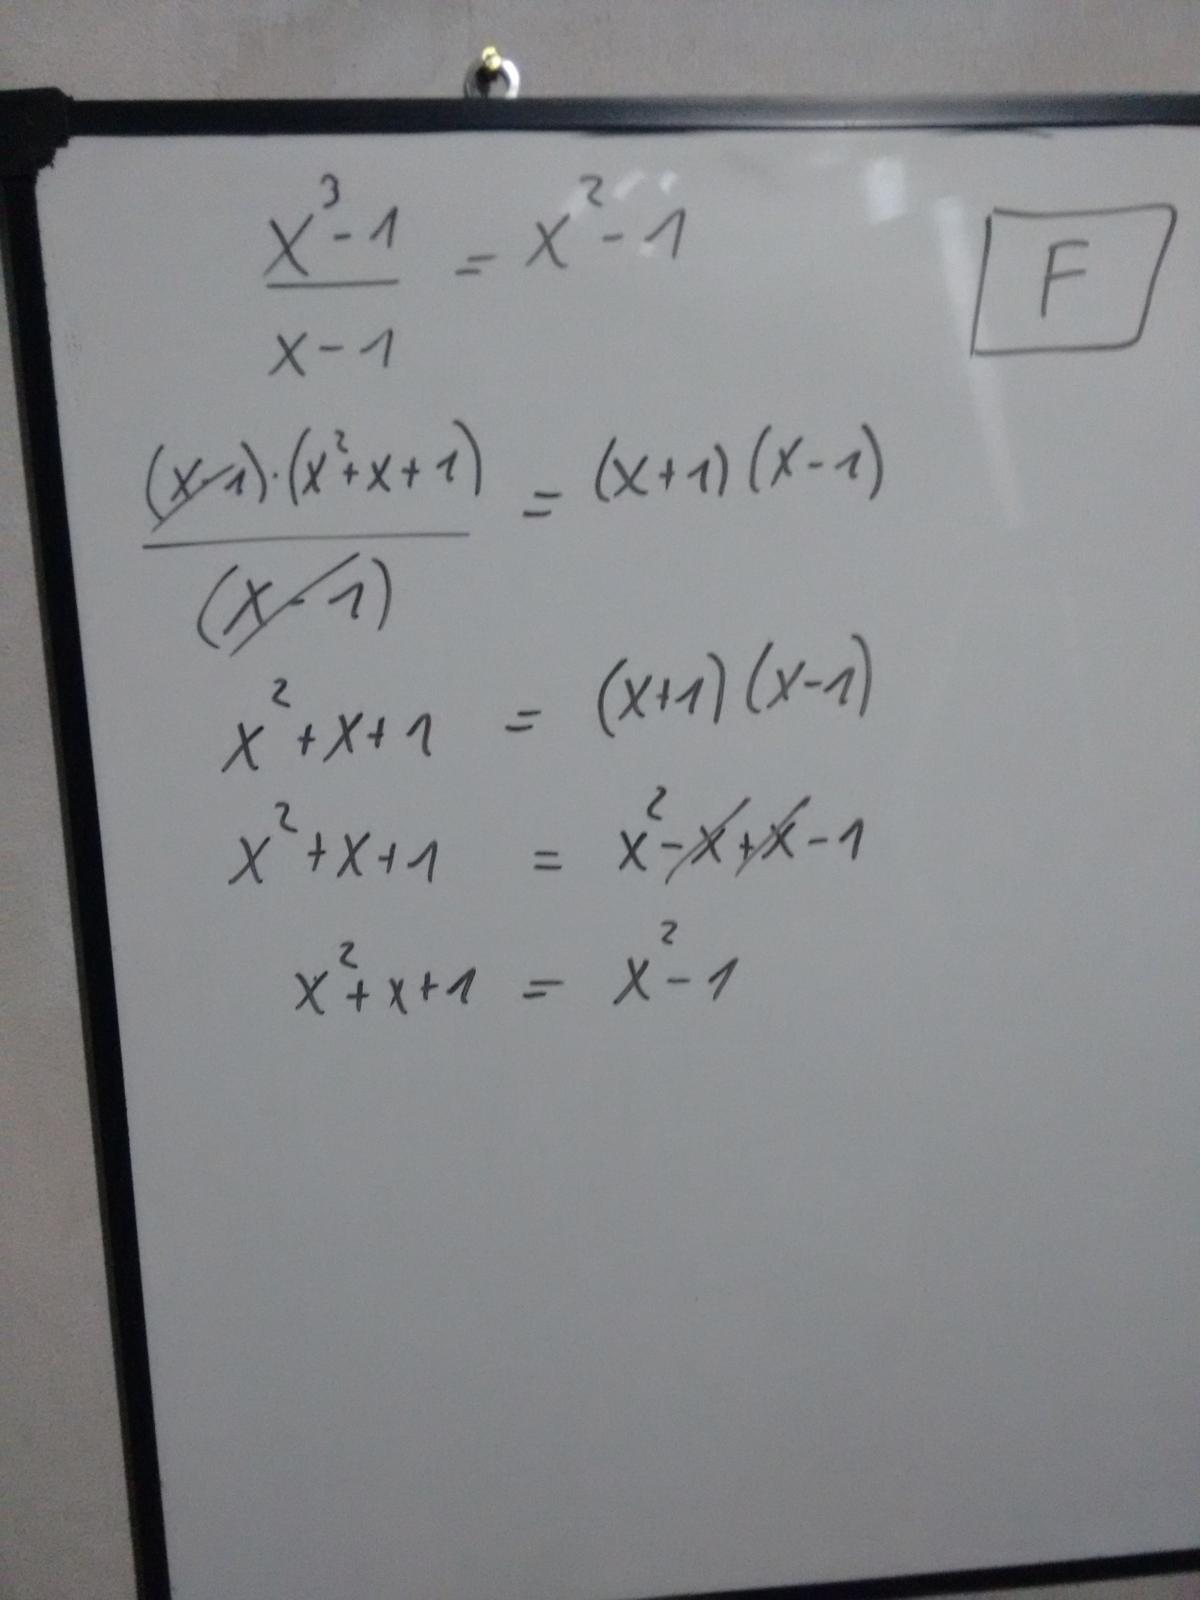 x³-1 / x-1 = x²-1
F
(x-1)·(x²+x+1) / (x-1) = (x+1)(x-1)
x²+x+1 = (x+1)(x-1)
x²+x+1 = x²-x+x-1
x²+x+1 = x²-1